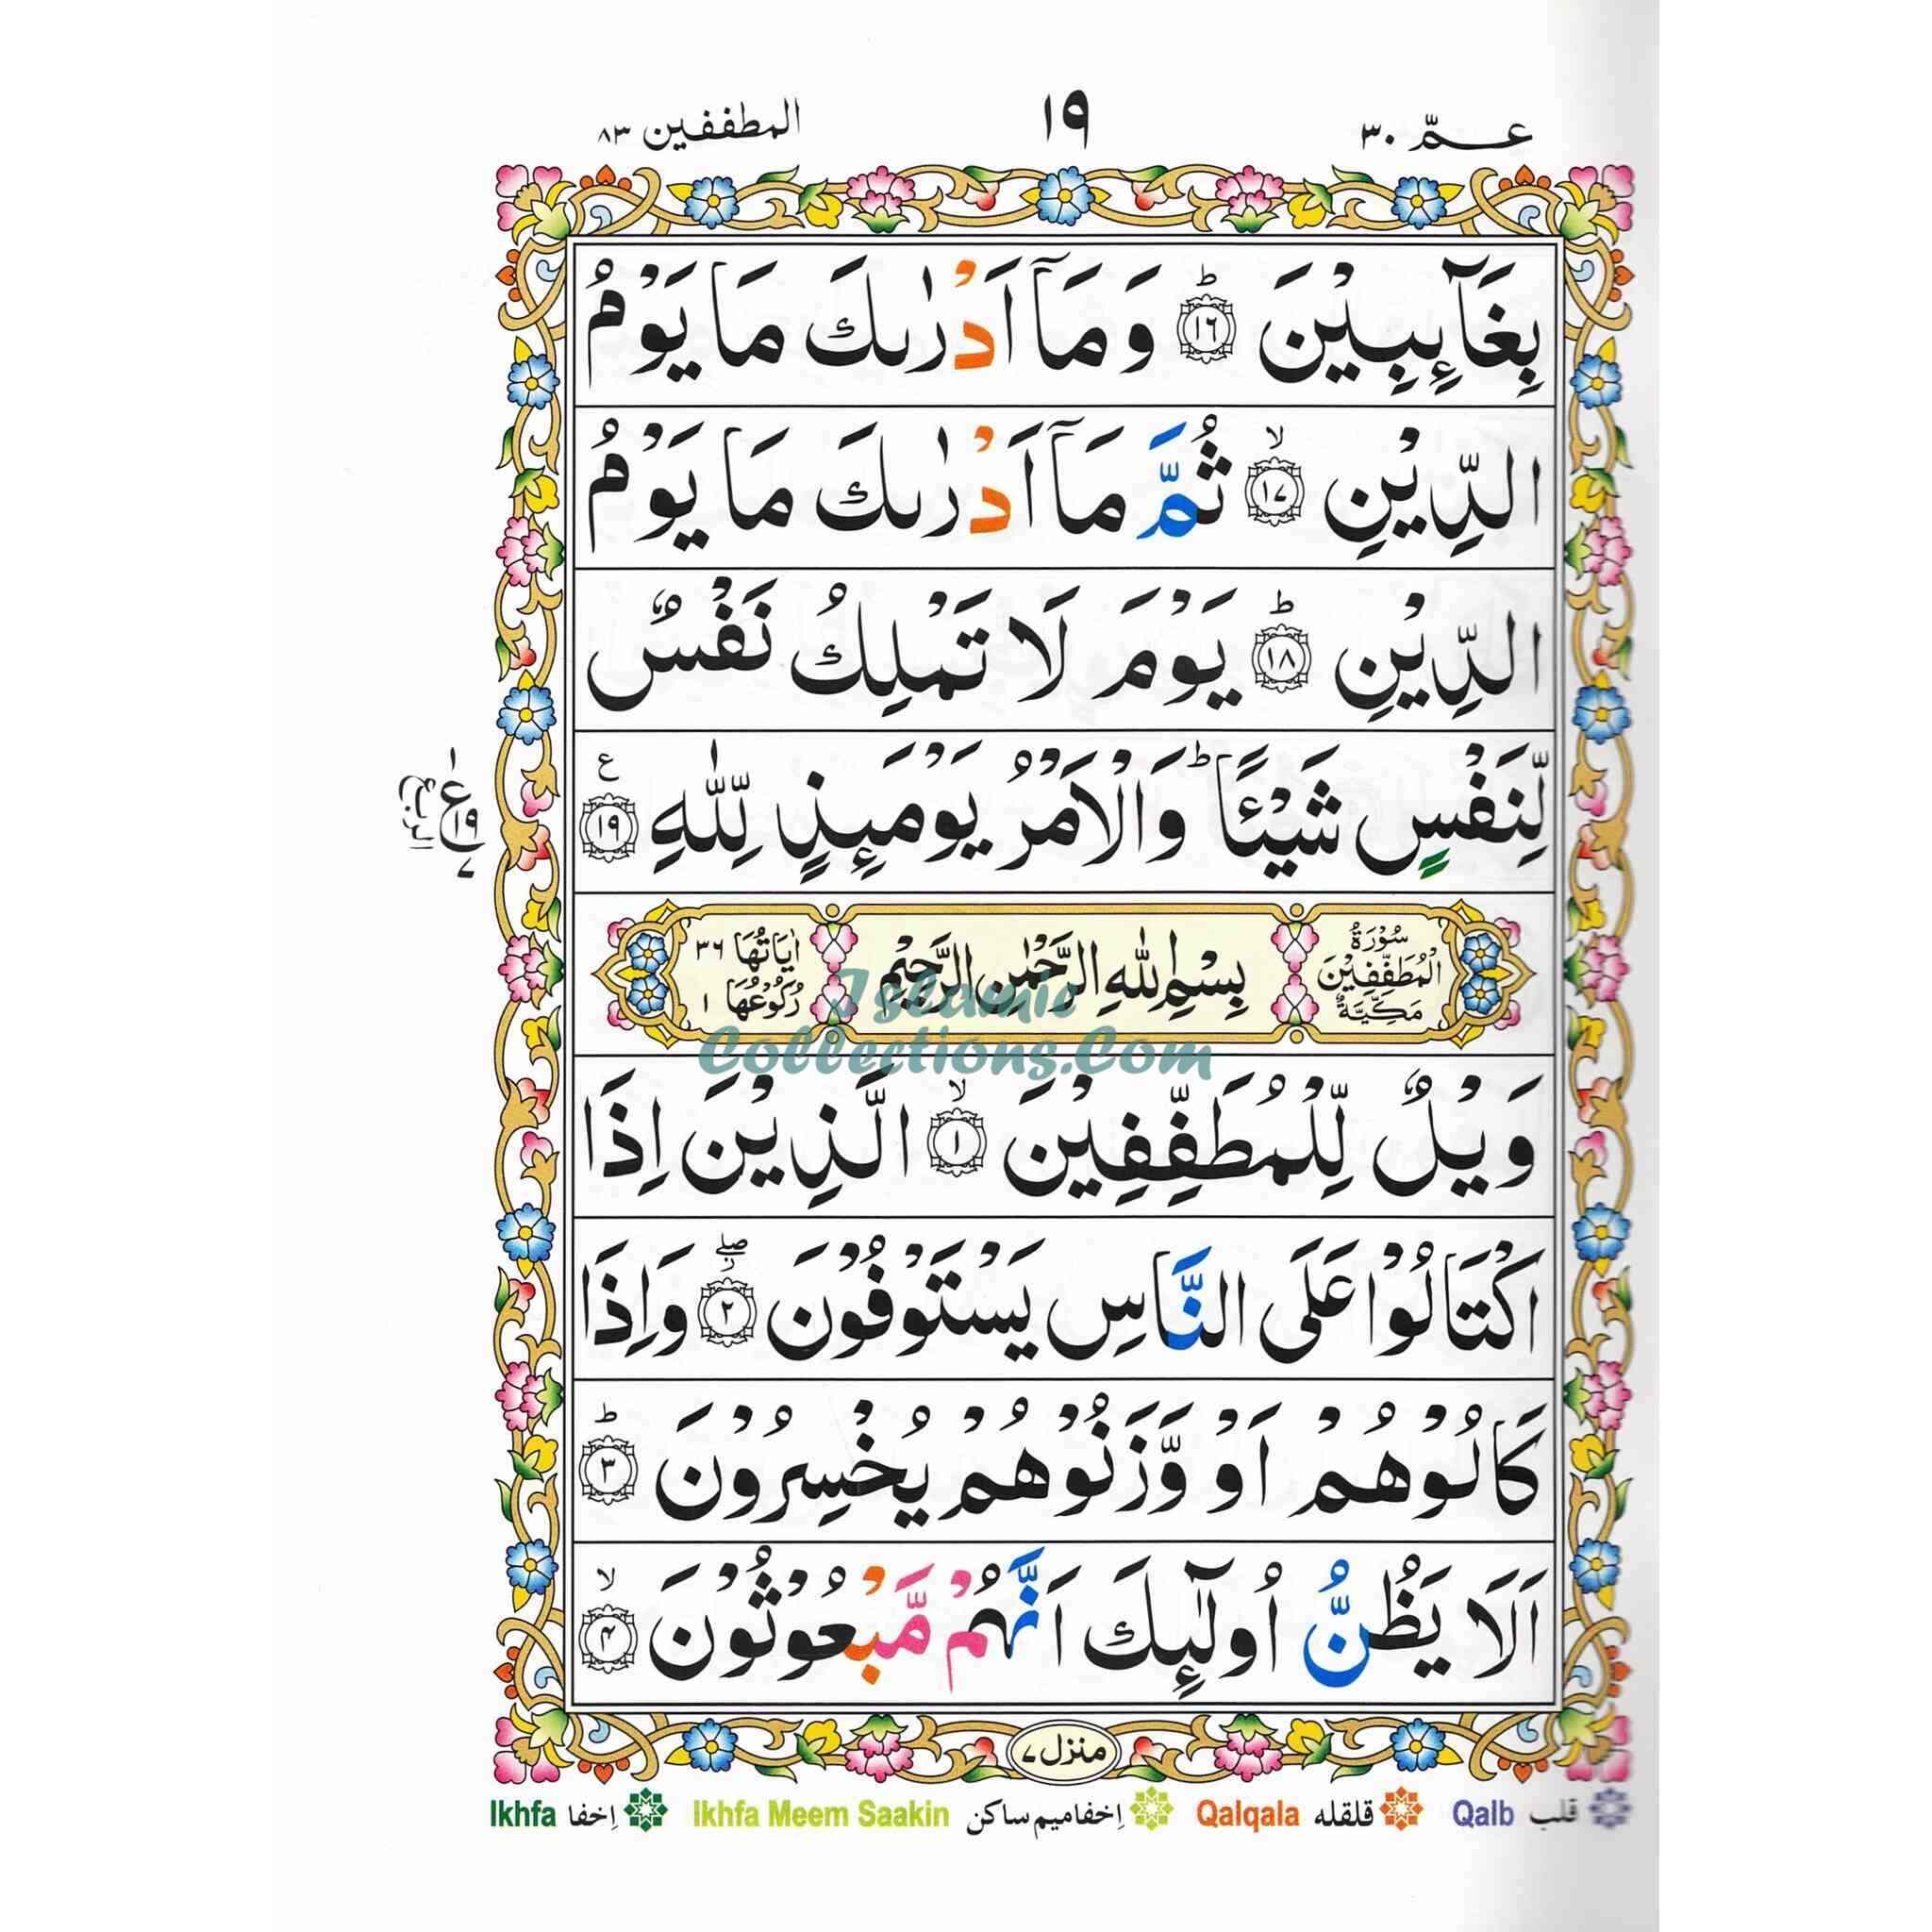 عـمّ ۳۰
۱۹
المطففين ۸۳
بِغَآئِبِيْنَ ؕ‏ ﴿۱۶﴾ وَمَاۤ اَدْرٰىكَ مَا يَوْمُ
الدِّيْنِ ۙ‏ ﴿۱۷﴾ ثُمَّ مَاۤ اَدْرٰىكَ مَا يَوْمُ
الدِّيْنِ ؕ‏ ﴿۱۸﴾ يَوْمَ لَا تَمْلِكُ نَفْسٌ
لِّنَفْسٍ شَيْـًٔا ؕ وَالْاَمْرُ يَوْمَئِذٍ لِّلّٰهِ ﴿۱۹﴾ ع
۱
ع
۱۹
۷
الربع
سُوْرَةُ الْمُطَفِّفِيْنَ مَكِّيَّةٌ
بِسْمِ اللهِ الرَّحْمٰنِ الرَّحِيْمِ
اٰيَاتُهَا ۳۶
رُكُوْعُهَا ۱
Islamic
Collections.Com
وَيْلٌ لِّلْمُطَفِّفِيْنَ ۙ‏ ﴿۱﴾ الَّذِيْنَ اِذَا
اكْتَالُوْا عَلَى النَّاسِ يَسْتَوْفُوْنَ ۖ‏ ﴿۲﴾ وَاِذَا
كَالُوْهُمْ اَوْ وَّزَنُوْهُمْ يُخْسِرُوْنَ ؕ‏ ﴿۳﴾
اَلَا يَظُنُّ اُولٰٓئِكَ اَنَّهُمْ مَّبْعُوْثُوْنَ ۙ‏ ﴿۴﴾
منزل ۷
قلب Qalb
قلقله Qalqala
اِخفا ميم ساكن Ikhfa Meem Saakin
اِخفا Ikhfa